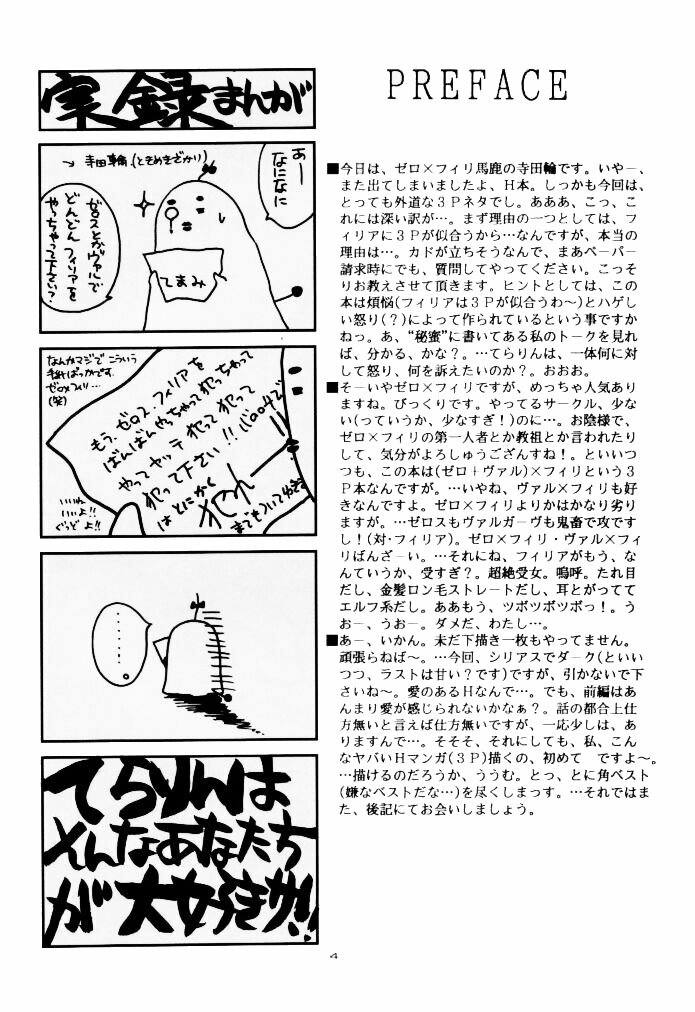 PREFACE
実録まんが
あー
なになに
→ 寺田輪(ときめきざかり)
てまみ
ゼロスとかヴァルで
どんどん フィリアを
やっちゃって下さい?
なんかマジでこういう
手紙ばっかです。
ゼロ×フィリ…
(笑)
もう、ゼロス、フィリアを
ばんばんやっちゃって 犯っちゃって
やってヤッテ 犯って 犯って
犯って下さい!!
はとにかく
犯れ
いいね
いいよ!!
ぐっどよ!!
……。
てらりんは
そんなあなたち
が大好きサ!!
■今日は、ゼロ×フィリ馬鹿の寺田輪です。いやー、
また出てしまいましたよ、H本。しっかも今回は、
とっても外道な3Pネタでし。あああ、こっ、こ
れには深い訳が…。まず理由の一つとしては、フ
ィリアに3Pが似合うから…なんですが、本当の
理由は…。カドが立ちそうなんで、まあペーパー
請求時にでも、質問してやってください。こっそ
りお教えさせて頂きます。ヒントとしては、この
本は煩悩(フィリアは3Pが似合うわ〜)とハゲし
い怒り(?)によって作られているという事ですか
ねっ。あ、“秘蜜”に書いてある私のトークを見れ
ば、分かる、かな?。…てらりんは、一体何に対
して怒り、何を訴えたいのか?。おおお。
■そーいやゼロ×フィリですが、めっちゃ人気あり
ますね。びっくりです。やってるサークル、少な
い(っていうか、少なすぎ!)のに…。お陰様で、
ゼロ×フィリの第一人者とか教祖とか言われたり
して、気分がよろしゅうござんすね!。といいつ
つも、この本は(ゼロ+ヴァル)×フィリという3
P本なんですが。…いやね、ヴァル×フィリも好
きなんですよ。ゼロ×フィリよりかはかなり劣り
ますが。…ゼロスもヴァルガーヴも鬼畜で攻です
し!(対・フィリア)。ゼロ×フィリ・ヴァル×フィ
リばんざーい。…それにね、フィリアがもう、な
んていうか、受すぎ?。超絶受女。嗚呼。たれ目
だし、金髪ロン毛ストレートだし、耳とがってて
エルフ系だし。ああもう、ツボツボツボっ!。う
おー、うおー。ダメだ、わたし…。
■あー、いかん。未だ下描き一枚もやってません。
頑張らねば〜。…今回、シリアスでダーク(といい
つつ、ラストは甘い?です)ですが、引かないで下
さいね〜。愛のあるHなんで…。でも、前編はあ
んまり愛が感じられないかなぁ?。話の都合上仕
方無いと言えば仕方無いですが、一応少しは、あ
りますんで…。そそそ、それにしても、私、こん
なヤバいHマンガ(3P)描くの、初めて ですよ〜。
…描けるのだろうか、ううむ。とっ、とに角ベスト
(嫌なベストだな…)を尽くしまっす。…それではま
た、後記にてお会いしましょう。
4